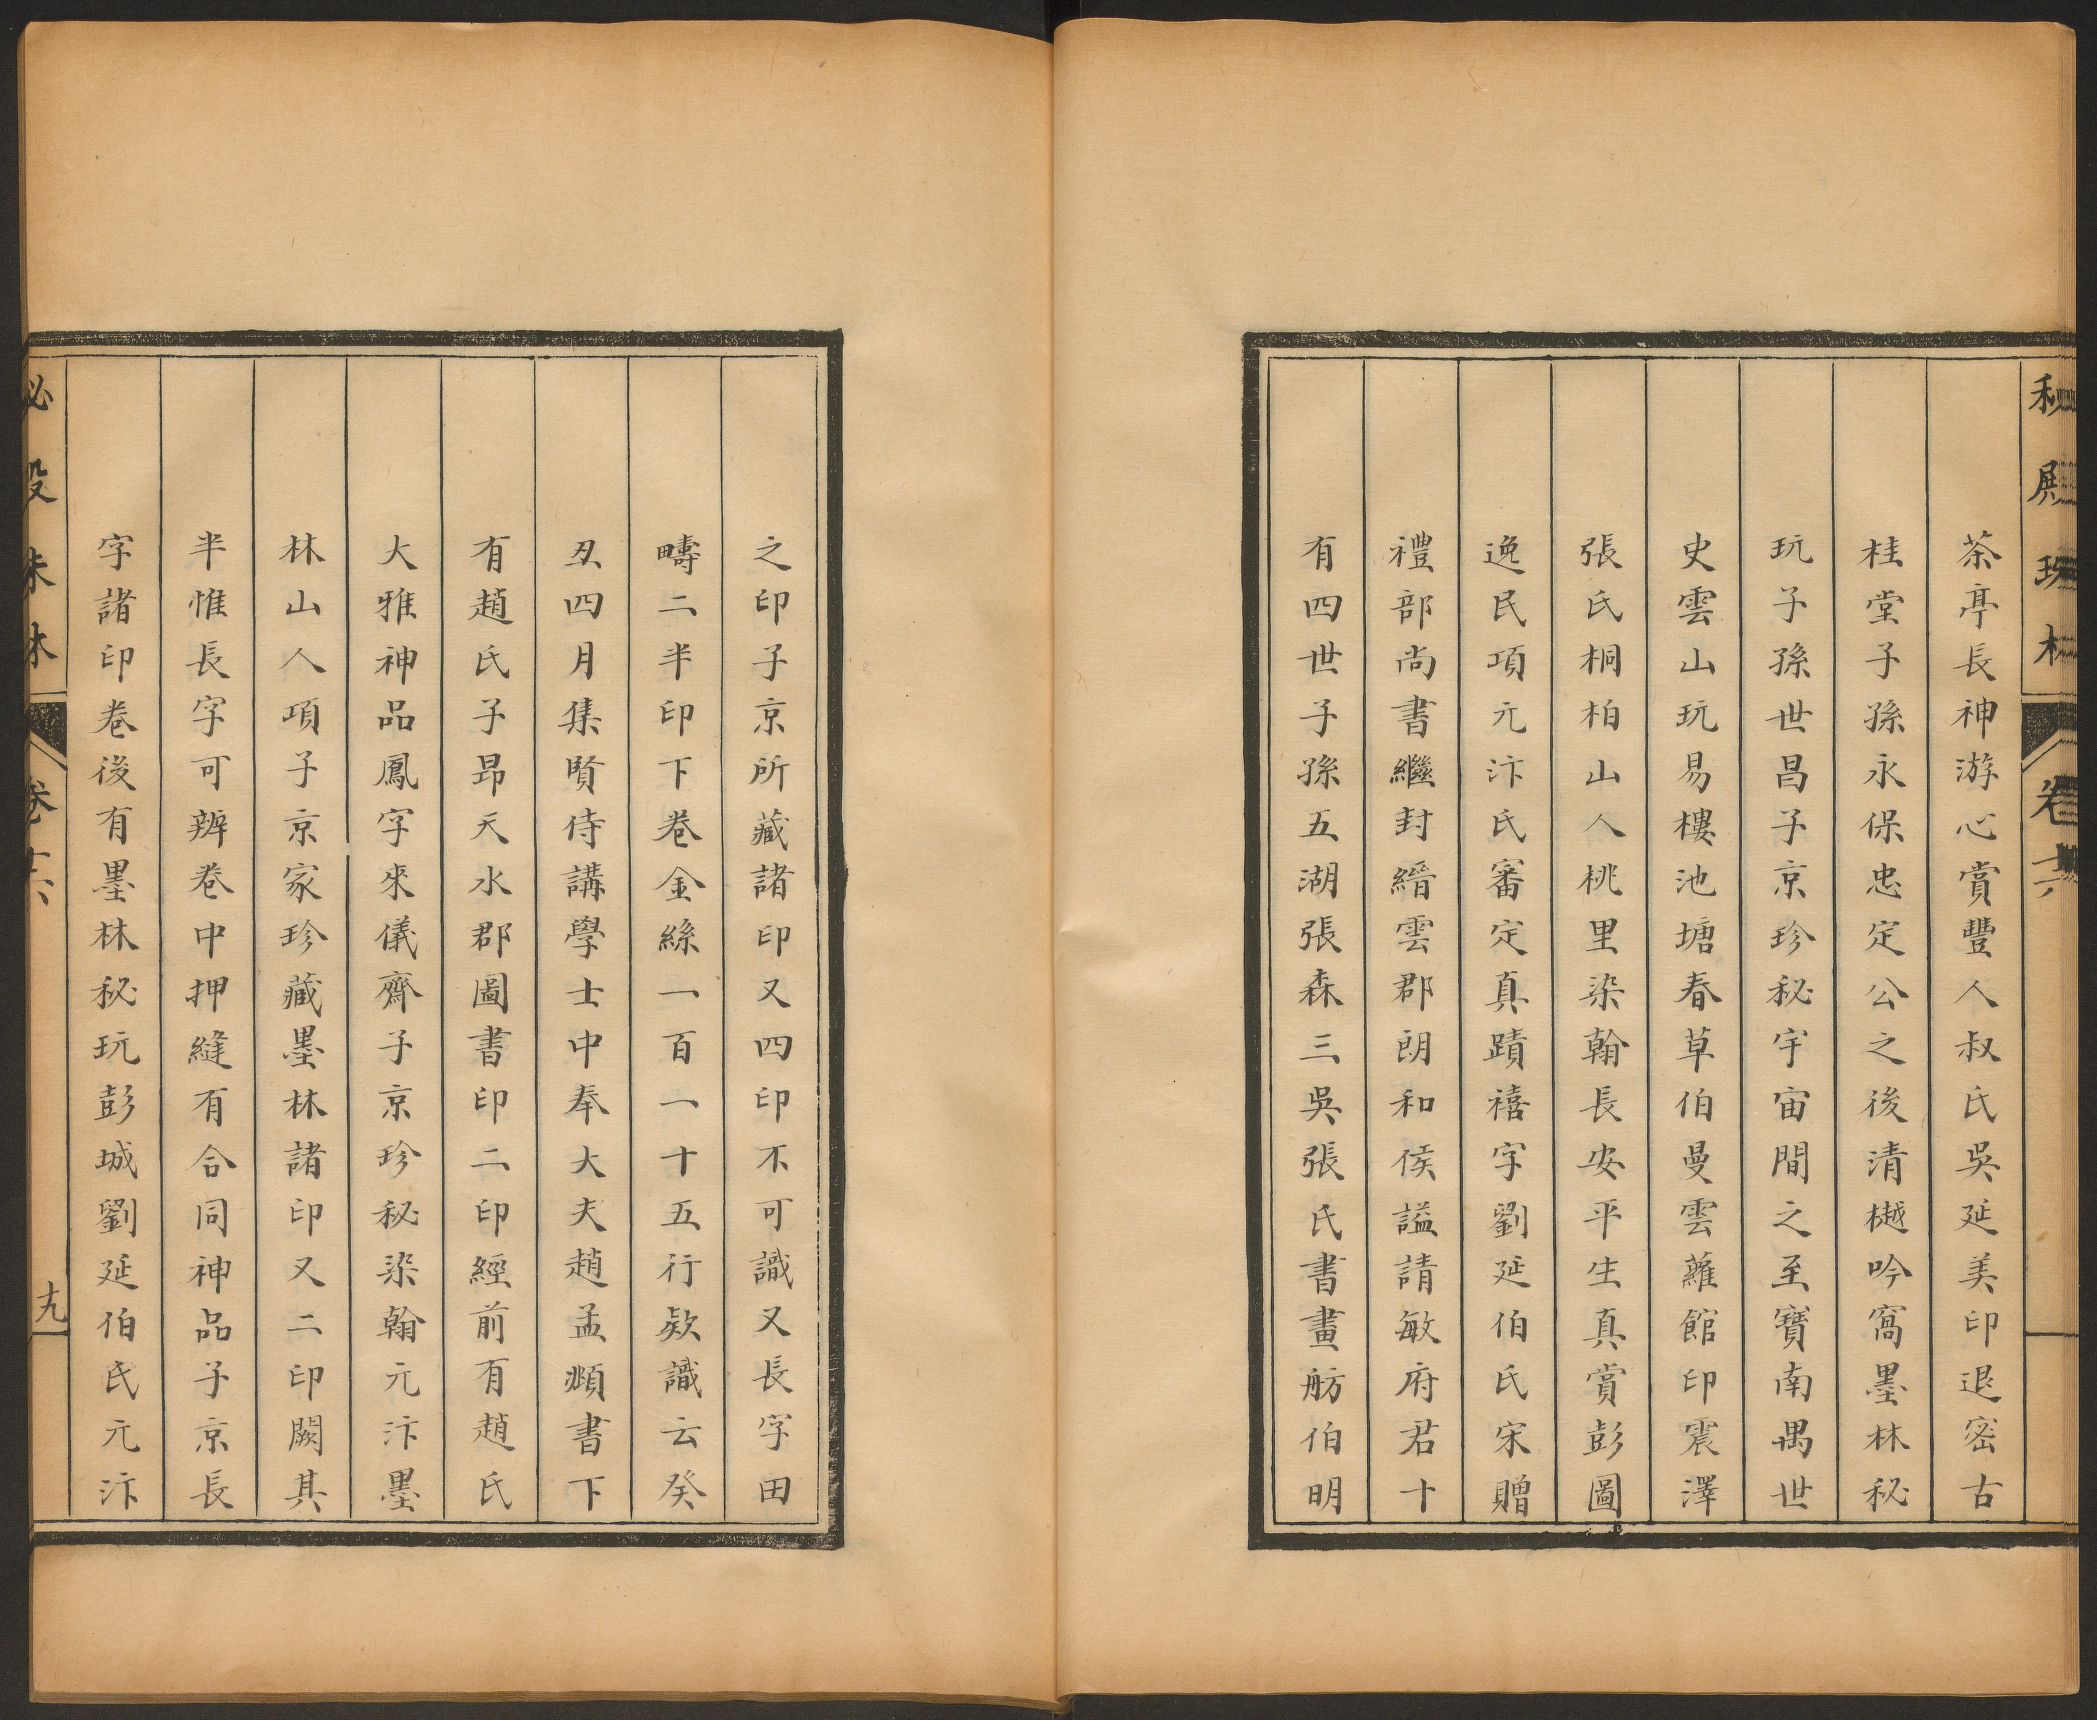 秘殿珠林
卷六
茶亭長神游心賞豐人叔氏吳延美印退密古
桂堂子孫永保忠定公之後清樾吟窩墨林秘
玩子孫世昌子京珍秘宇宙間之至寶南禺世
史雲山玩易樓池塘春草伯曼雲蘿館印震澤
張氏桐柏山人桃里染翰長安平生真賞彭圖
逸民項元汴氏審定真蹟禧字劉延伯氏宋贈
禮部尚書繼封縉雲郡朗和侯謚請敏府君十
有四世子孫五湖張森三吳張氏書畫舫伯明
之印子京所藏諸印又四印不可識又長字田
疇二半印下卷金絲一百一十五行欵識云癸
丑四月集賢侍講學士中奉大夫趙孟頫書下
有趙氏子昂天水郡圖書印二印經前有趙氏
大雅神品鳳字來儀齋子京珍秘染翰元汴墨
林山人項子京家珍藏墨林諸印又二印闕其
半惟長字可辨卷中押縫有合同神品子京長
字諸印卷後有墨林秘玩彭城劉延伯氏元汴
秘殿珠林
卷六
十九